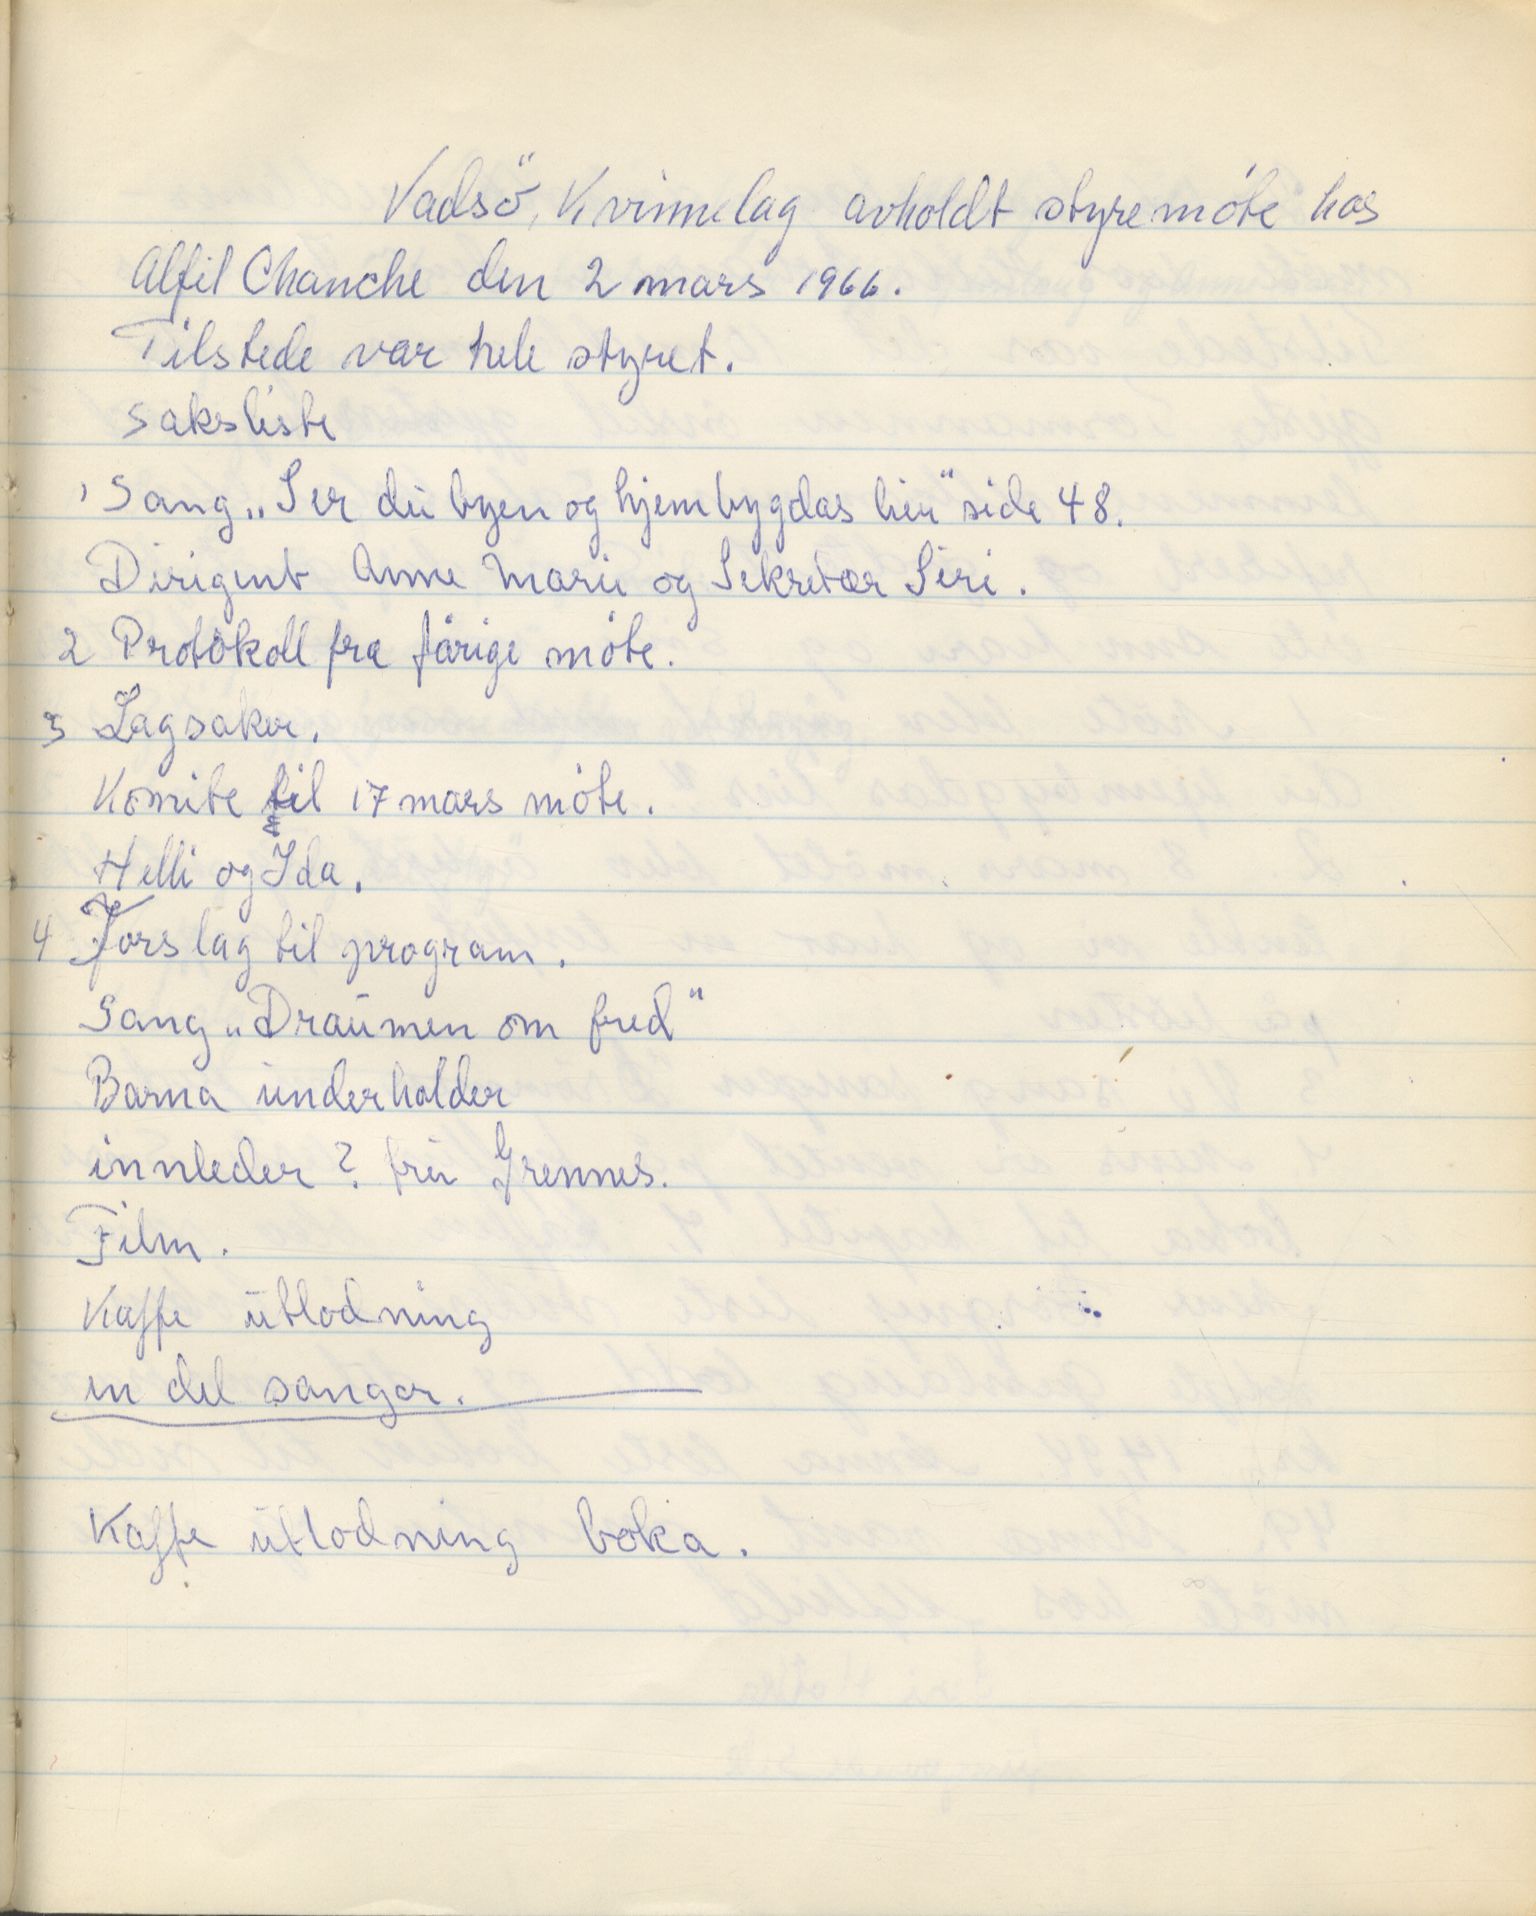 Vadsö, Kvinnelag avholdt styremöte hos
Alfil Chanche den 2 mars 1966.
Tilstede var hele styret.
saksliste
1 Sang „Ser du byen og hjembygdas lier" side 48.
Dirigent Anne Marie og Sekretær Siri.
2 Protokoll fra förige möte.
3 Lagsaker.
Komite til 17 mars möte.
Helli og Ida.
4 Forslag til program.
Sang „Draumen om fred"
Barna underholder
innleder? fru Grennes.
Film.
Kaffe utlodning
en del sanger.
Kaffe utlodning boka.